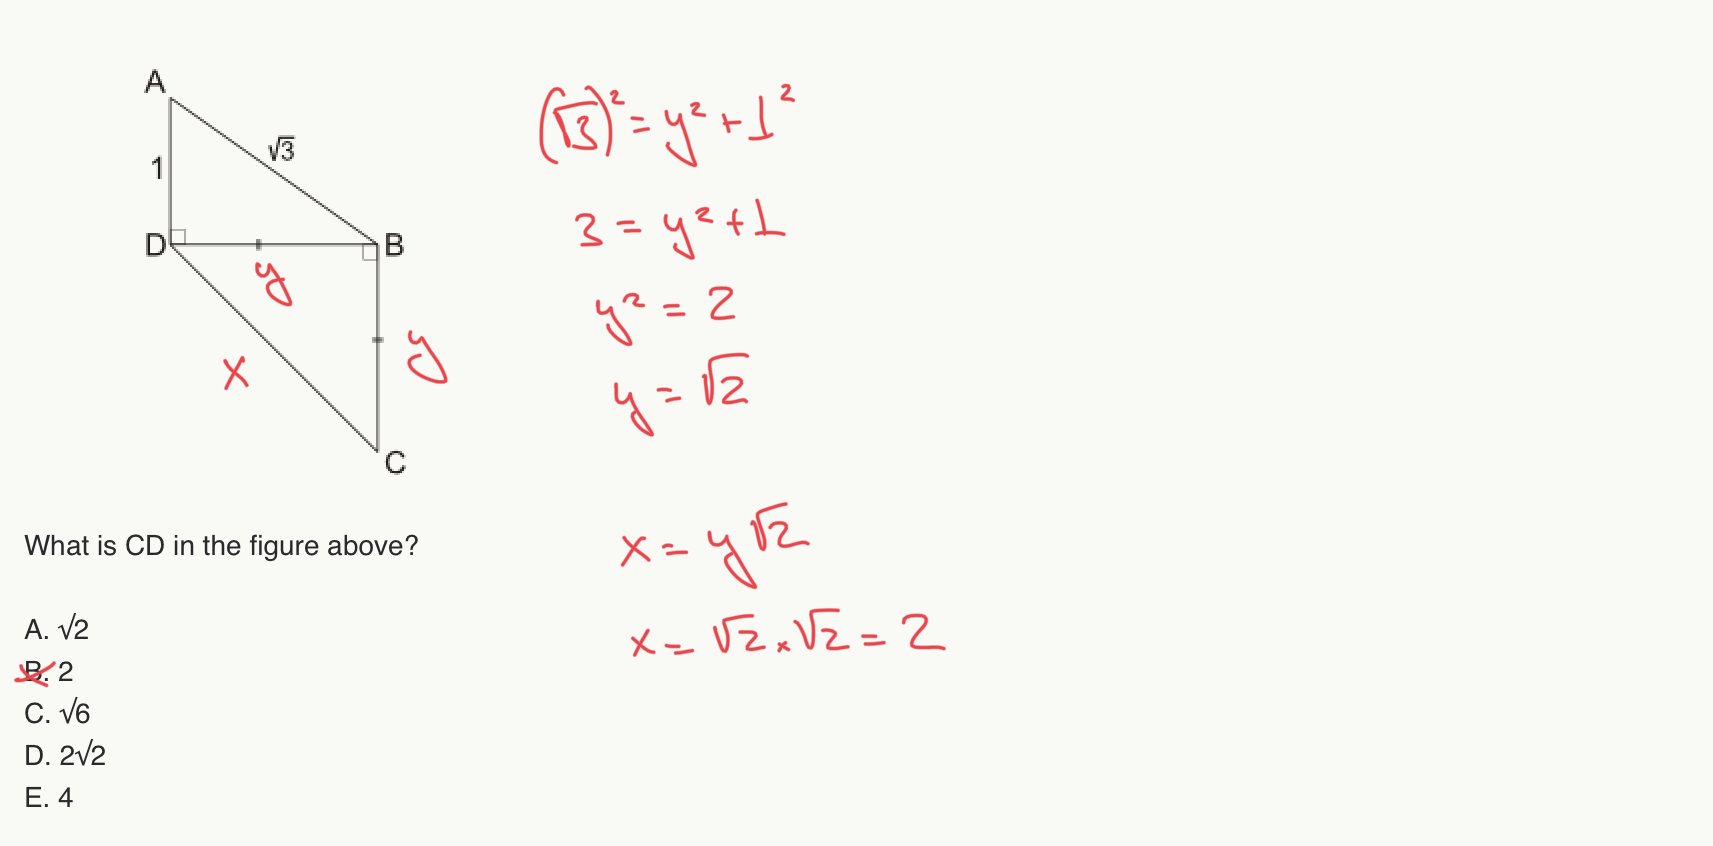 A
√3
1
D
B
y
y
x
C
What is CD in the figure above?
A. √2
B. 2
C. √6
D. 2√2
E. 4
(√3)² = y² + 1²
3 = y² + 1
y² = 2
y = √2
x = y√2
x = √2 × √2 = 2